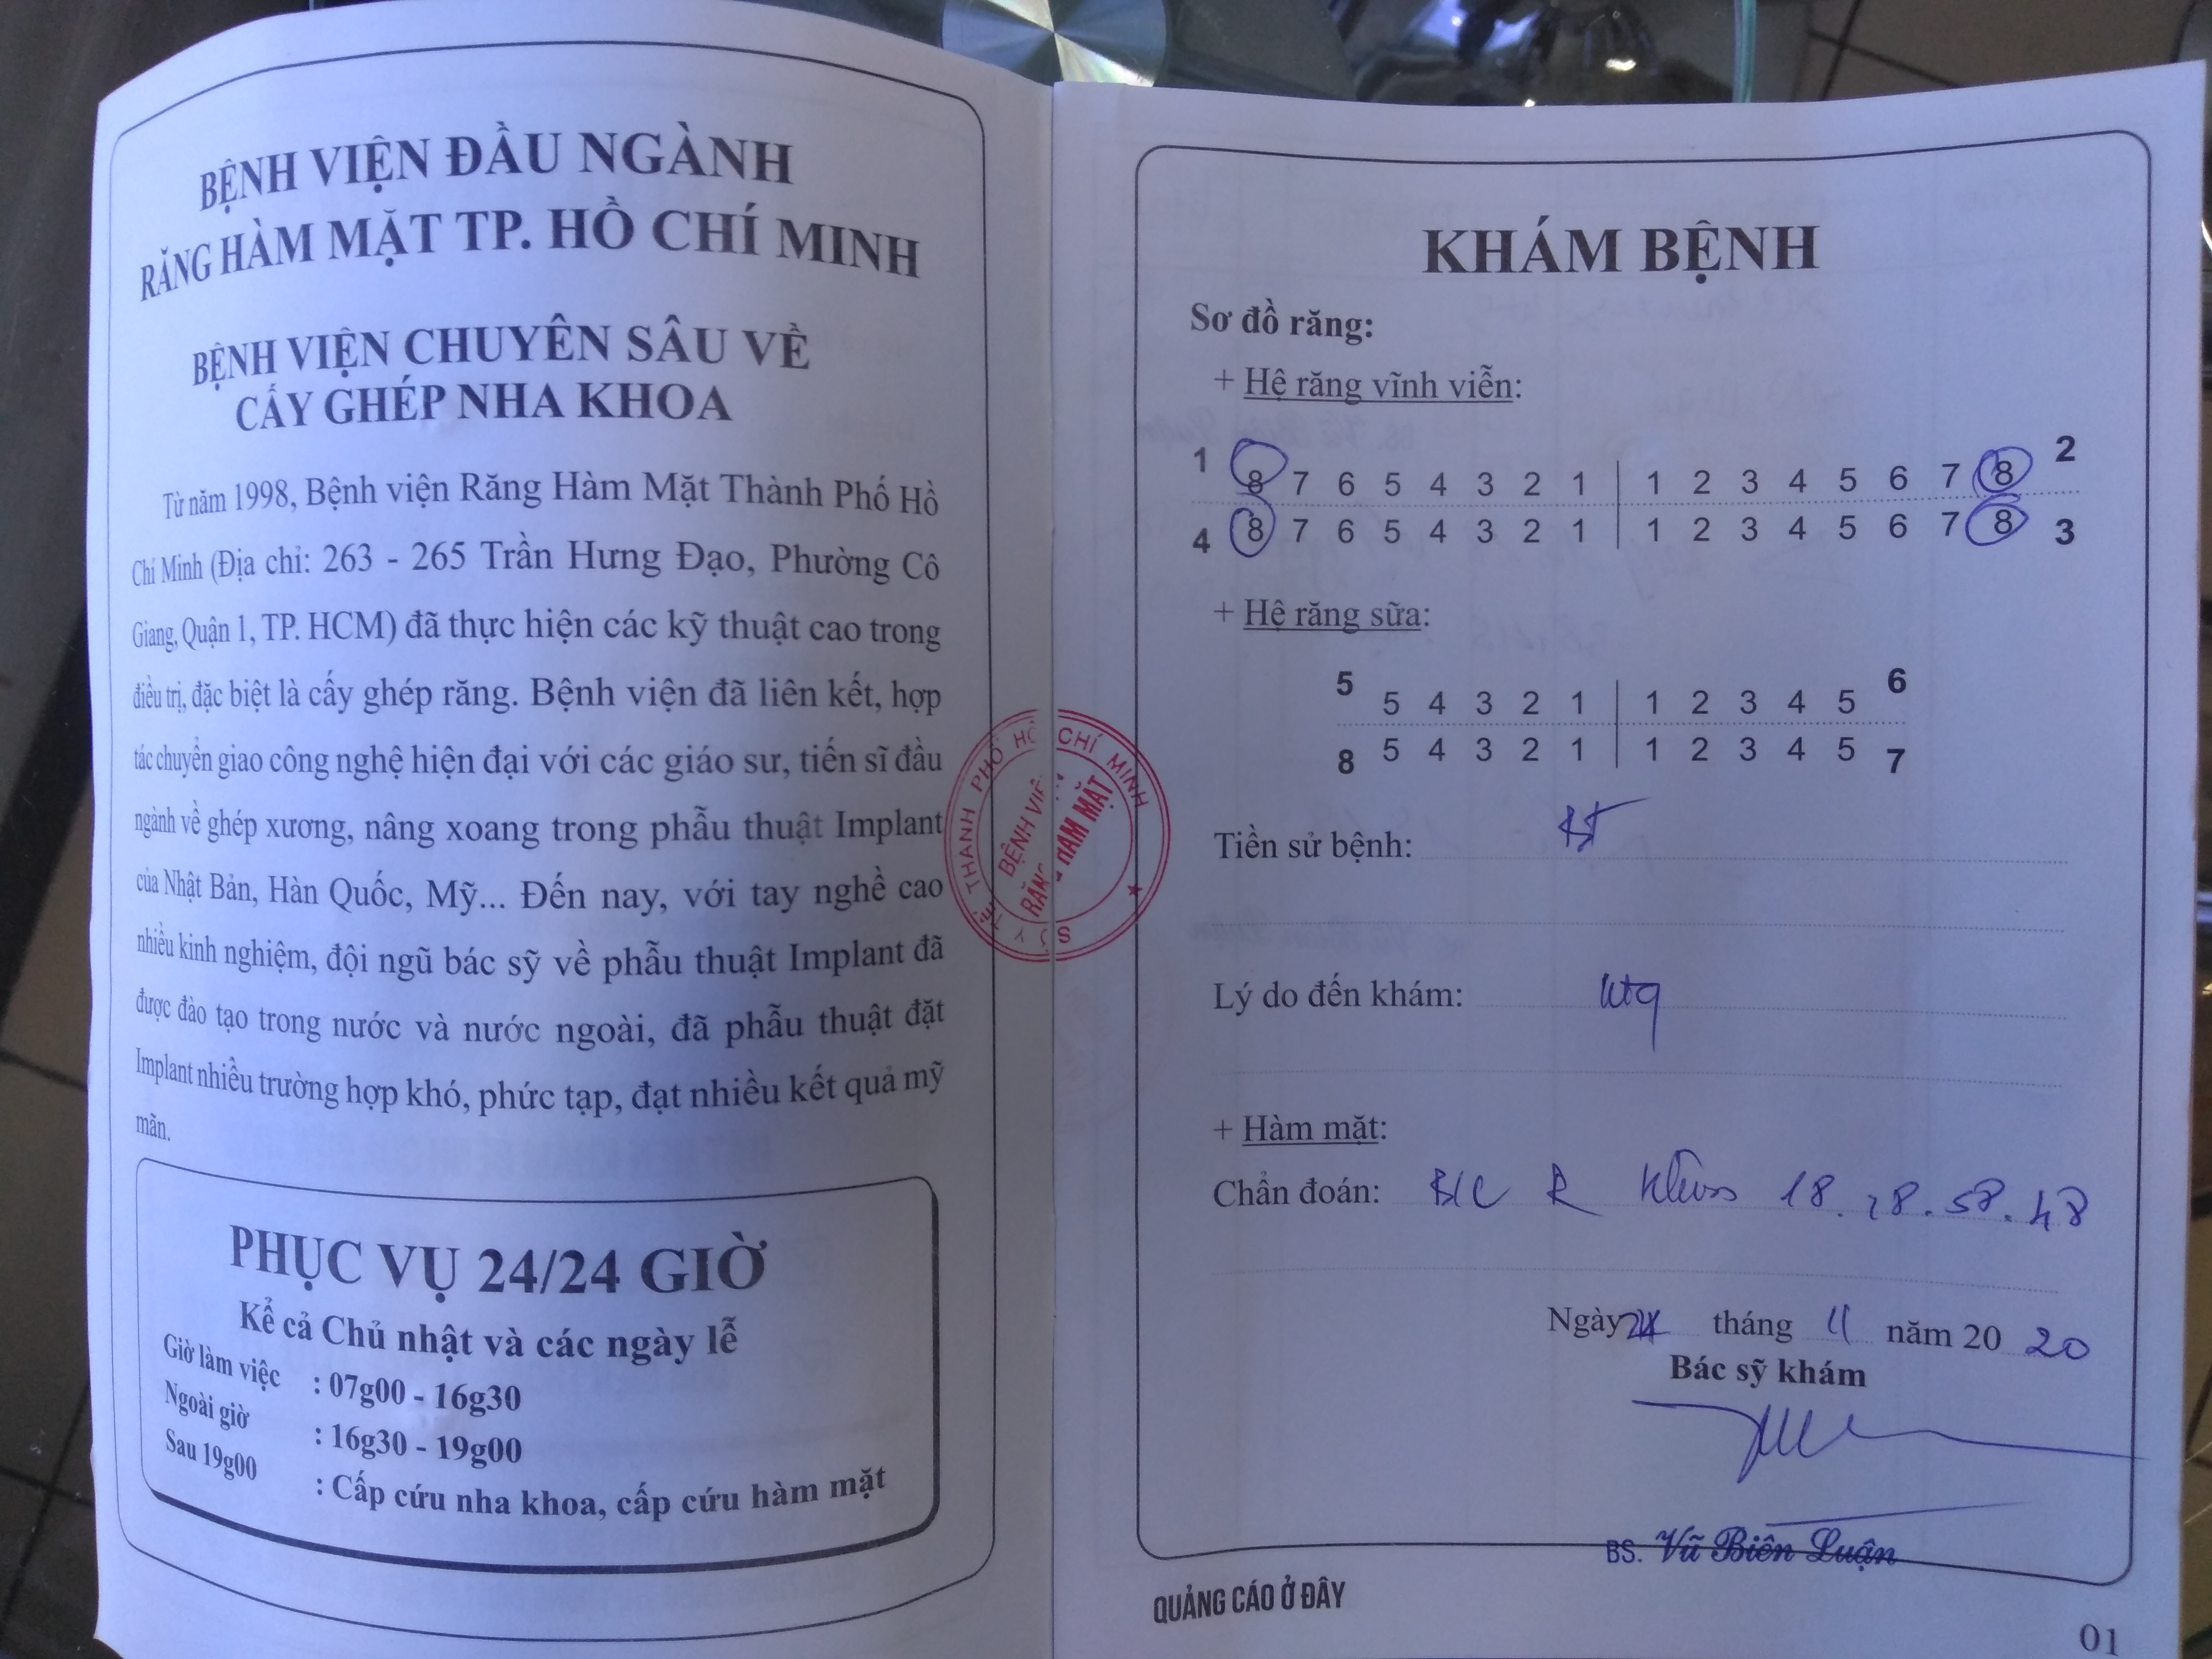 BỆNH VIỆN ĐẦU NGÀNH
RĂNG HÀM MẶT TP. HỒ CHÍ MINH
BỆNH VIỆN CHUYÊN SÂU VỀ
CẤY GHÉP NHA KHOA
Từ năm 1998, Bệnh viện Răng Hàm Mặt Thành Phố Hồ
Chí Minh (Địa chỉ: 263 - 265 Trần Hưng Đạo, Phường Cô
Giang, Quận 1, TP. HCM) đã thực hiện các kỹ thuật cao trong
điều trị, đặc biệt là cấy ghép răng. Bệnh viện đã liên kết, hợp
tác chuyển giao công nghệ hiện đại với các giáo sư, tiến sĩ đầu
ngành về ghép xương, nâng xoang trong phẫu thuật Implant
của Nhật Bản, Hàn Quốc, Mỹ... Đến nay, với tay nghề cao
nhiều kinh nghiệm, đội ngũ bác sỹ về phẫu thuật Implant đã
được đào tạo trong nước và nước ngoài, đã phẫu thuật đặt
Implant nhiều trường hợp khó, phức tạp, đạt nhiều kết quả mỹ
mãn.
PHỤC VỤ 24/24 GIỜ
Kể cả Chủ nhật và các ngày lễ
Giờ làm việc : 07g00 - 16g30
Ngoài giờ : 16g30 - 19g00
Sau 19g00 : Cấp cứu nha khoa, cấp cứu hàm mặt
THÀNH PHỐ HỒ CHÍ MINH
BỆNH VIỆN
RĂNG HÀM MẶT
KHÁM BỆNH
Sơ đồ răng:
+ Hệ răng vĩnh viễn:
1 8 7 6 5 4 3 2 1 | 1 2 3 4 5 6 7 8 2
4 8 7 6 5 4 3 2 1 | 1 2 3 4 5 6 7 8 3
+ Hệ răng sữa:
5 5 4 3 2 1 | 1 2 3 4 5 6
8 5 4 3 2 1 | 1 2 3 4 5 7
Tiền sử bệnh: BT
Lý do đến khám:
+ Hàm mặt:
Chẩn đoán: R 18. 28. 58. 48
Ngày tháng 11 năm 20 20
Bác sỹ khám
BS. Vũ Biên Luận
QUẢNG CÁO Ở ĐÂY
01